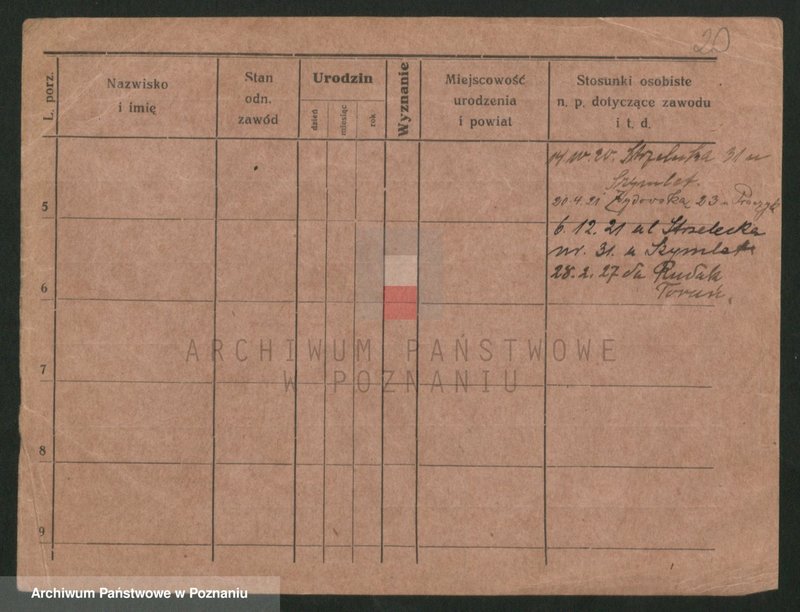 20
L. porz.
Nazwisko
i imię
Stan
odn.
zawód
Urodzin
dzień
miesiąc
rok
Wyznanie
Miejscowość
urodzenia
i powiat
Stosunki osobiste
n. p. dotyczące zawodu
i t. d.
20. Strzelecka 31 u
Szymlet.
5
20.4.21 Żydowska 23 u
6.12.21 ul Strzelecka
nr. 31. u Szymlet
6
28.2.27 do Rudak
Toruń.
ARCHIWUM PAŃSTWOWE
W POZNANIU
7
8
9
Archiwum Państwowe w Poznaniu